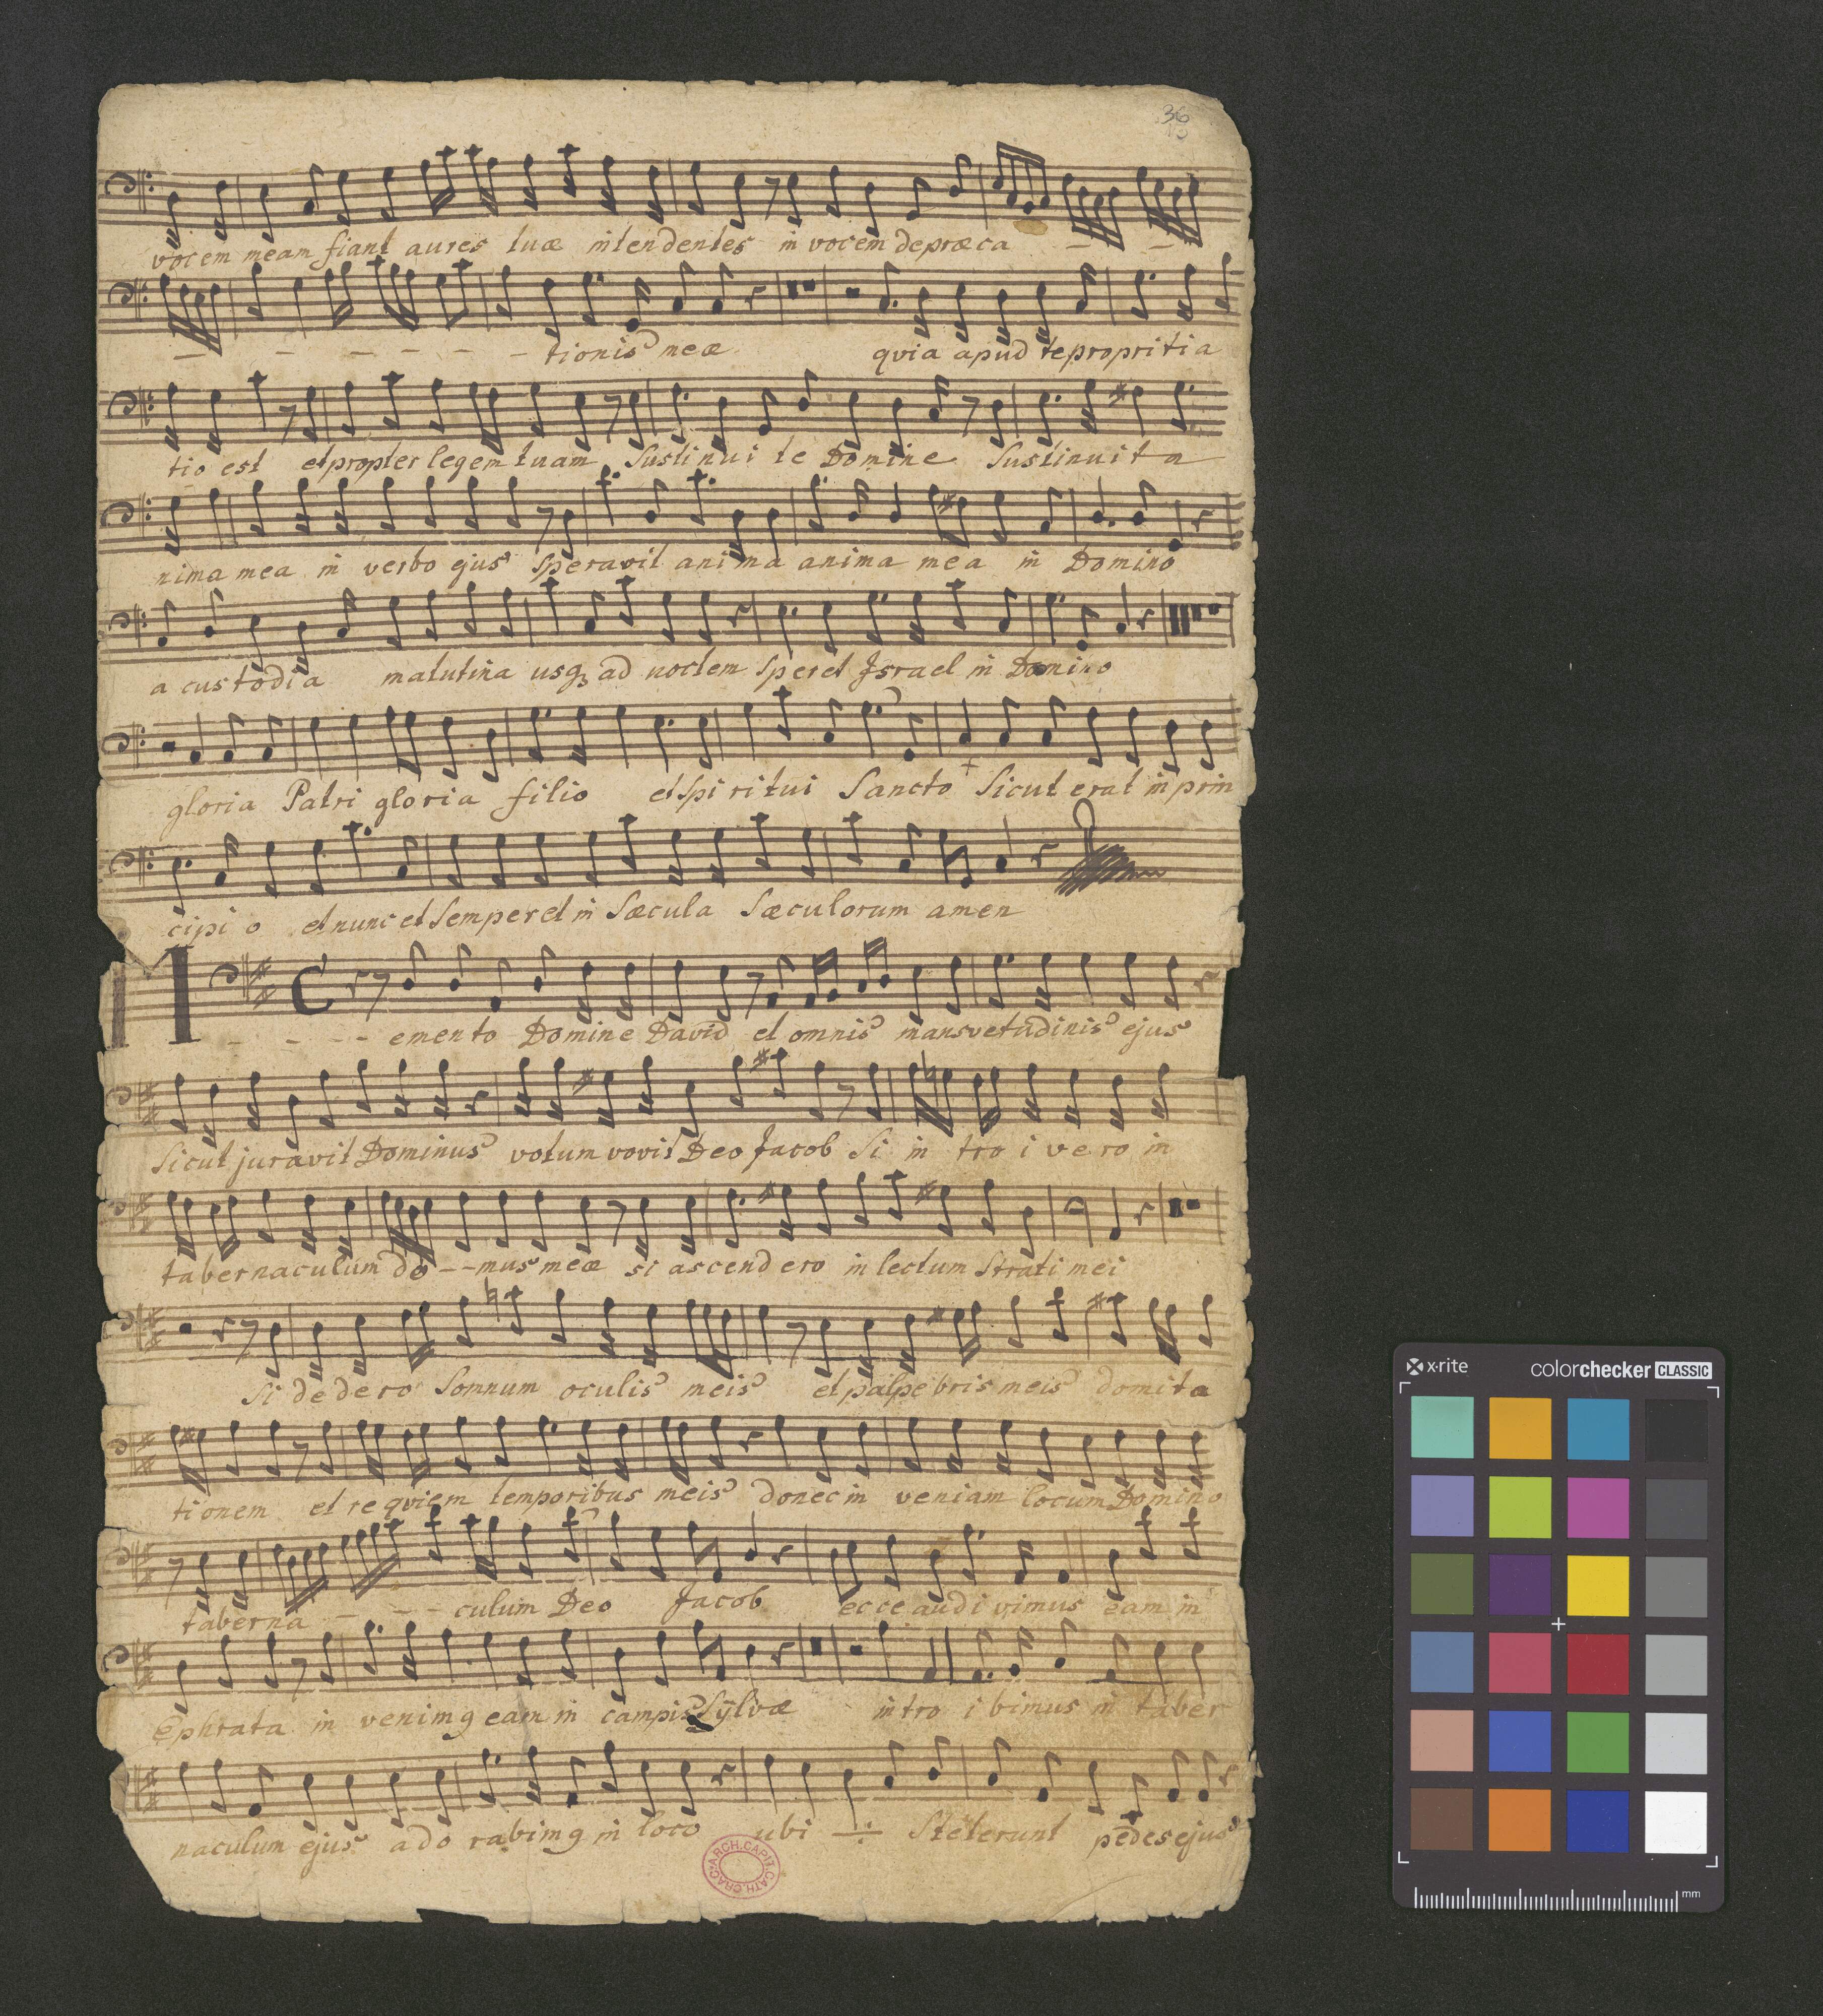 36
vocem meam fiant aures tuæ intendentes in vocem depræca - -
- - - - - - - tionis meæ qvia apud te propritia
tio est et propter legem tuam Sustinui te Domine Sustinuit a
nima mea in verbo ejus Speravit anima anima mea in Domino
a custodia matutina usq3 ad noctem Speret Israel in Domino
gloria Patri gloria filio et Spiritui Sancto + Sicut erat in prin
cipi o et nunc et Semper et in Sæcula Sæculorum amen
M - - - - emento Domine David et omnis mansvetudinis ejus
Sicut juravit Dominus votum vovit Deo Jacob Si in tro i vero in
tabernaculum do -- mus meæ si ascendero in lectum Strati mei
Si dedero Somnum oculis meis et palpebris meis domita
tionem et reqviem temporibus meis donec in veniam locum Domino
taberna - - - culum Deo Jacob ecce audivimus eam in
ephrata in venimq eam in campis Sylvæ intro i bimus in taber
naculum ejus ado rabimq in loco ubi -÷- Steterunt pedes ejus
ARCH.CAPIT.CATH.CRAC.
x-rite colorchecker CLASSIC
mm